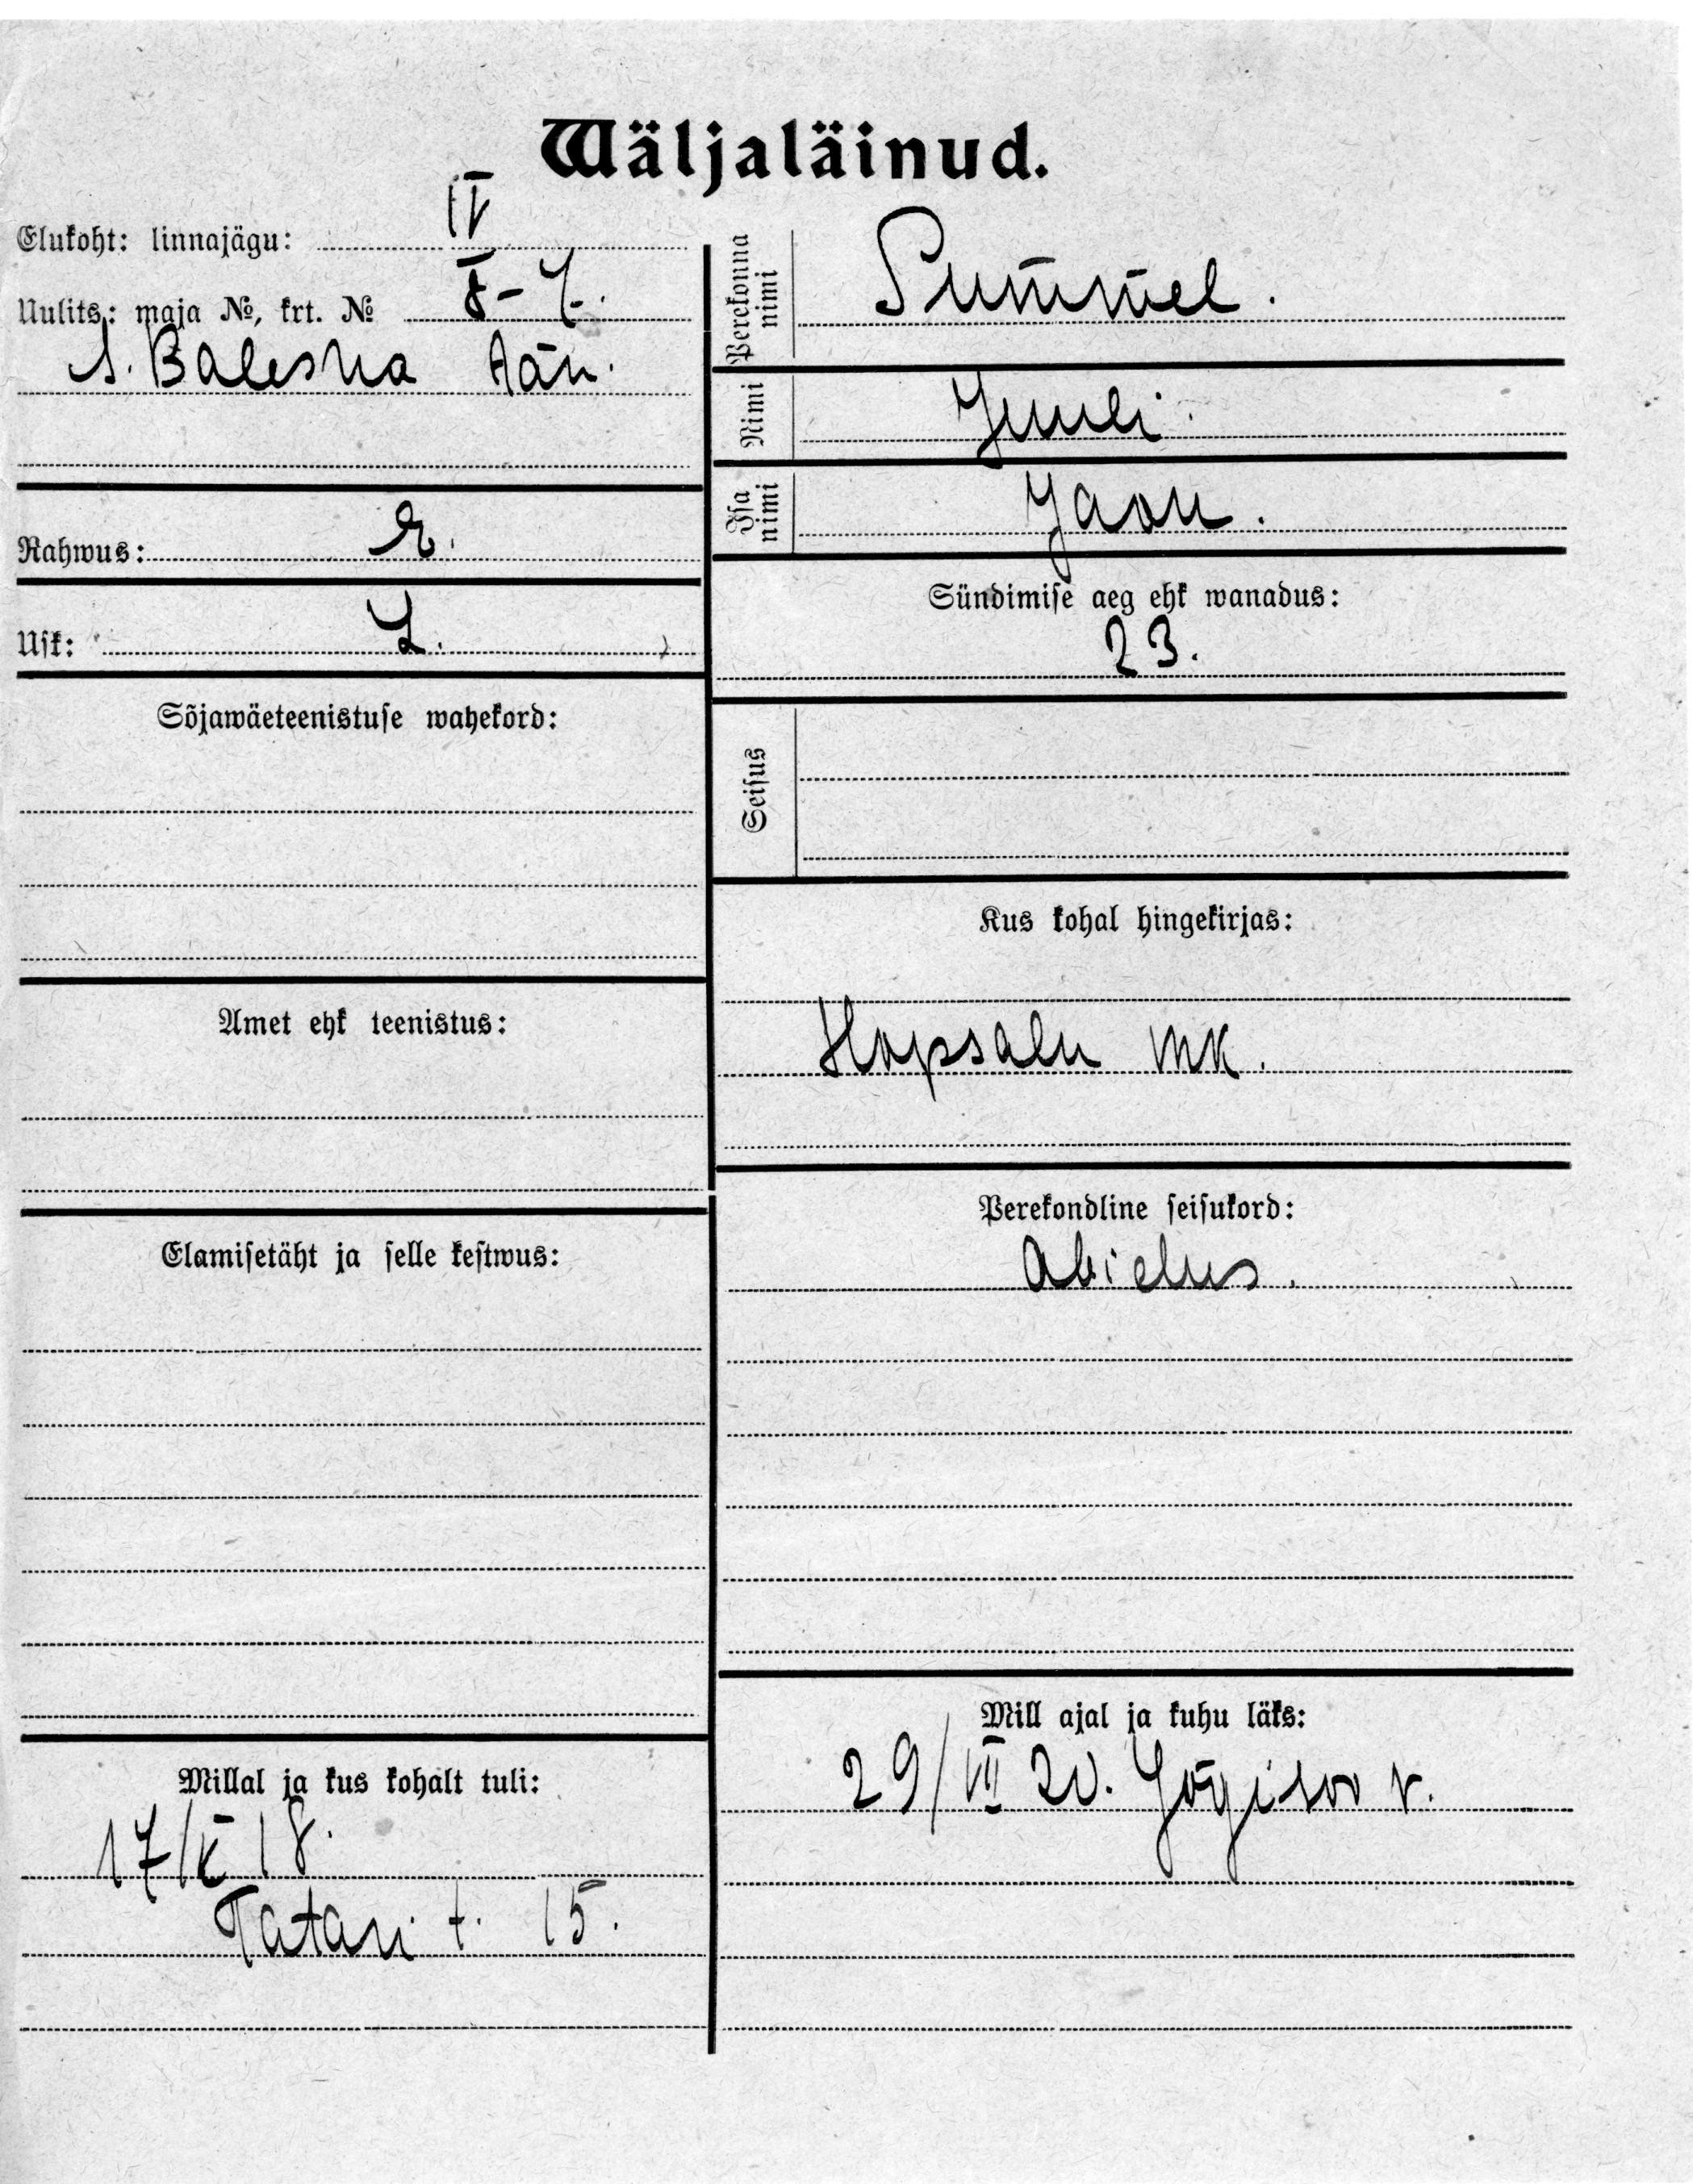 Wäljaläinud.
Elukoht: linnajägu: IV
Uulits: maja №, krt. № 8-7.
Rahwus: E.
Usk: L.
Sõjawäeteenistuse wahekord:
Amet ehk teenistus:
Elamisetäht ja selle kestwus:
Millal ja kus kohalt tuli:
18.
Tatari t. 15.
Perekonna nimi
Nimi Juuli.
Isa nimi Jaan.
Sündimise aeg ehk wanadus:
23.
Seisus
Kus kohal hingekirjas:
Hapsalu mk.
Perekondline seisukord:
Abielus.
Mill ajal ja kuhu läks:
29/VII 20. Jõgisoo v.